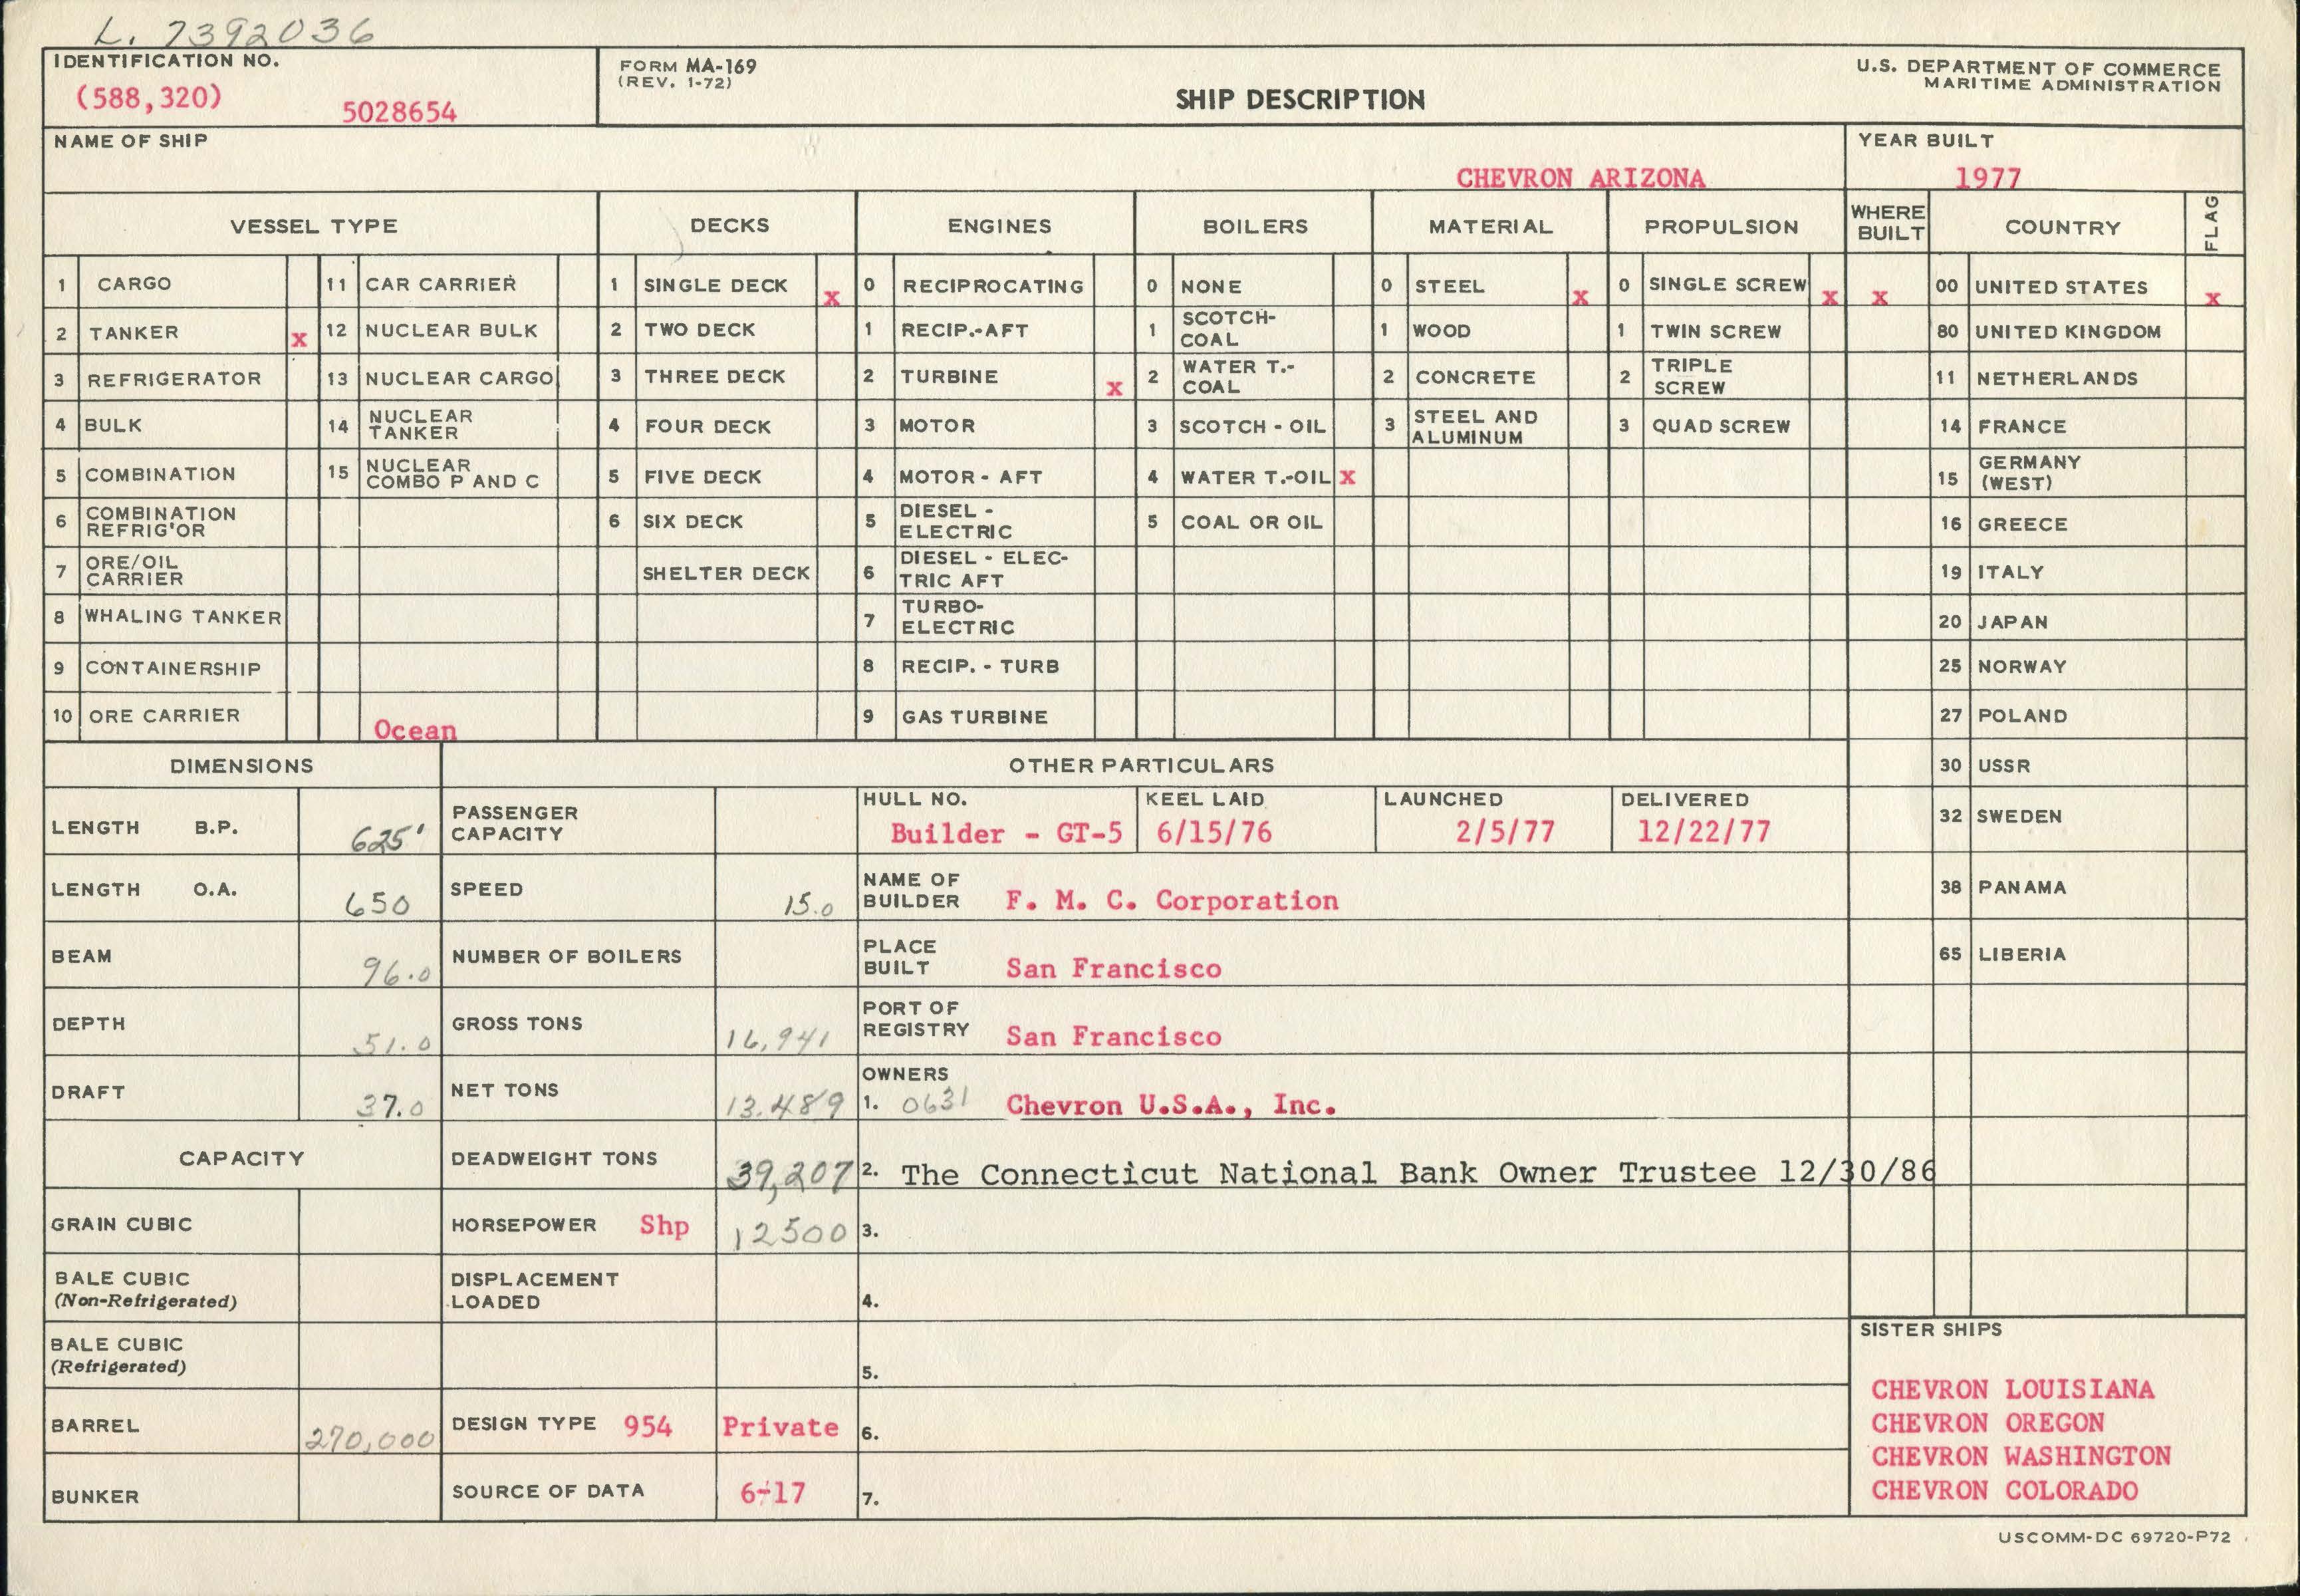 L. 7392036
IDENTIFICATION NO.
(588,320) 5028654
FORM MA-169
(REV. 1-72)
SHIP DESCRIPTION
U.S. DEPARTMENT OF COMMERCE
MARITIME ADMINISTRATION
NAME OF SHIP
CHEVRON ARIZONA
YEAR BUILT
1977
VESSEL TYPE DECKS ENGINES BOILERS MATERIAL PROPULSION WHERE BUILT COUNTRY FLAG
1 CARGO 11 CAR CARRIER 1 SINGLE DECK x 0 RECIPROCATING 0 NONE 0 STEEL x 0 SINGLE SCREW x x 00 UNITED STATES x
2 TANKER x 12 NUCLEAR BULK 2 TWO DECK 1 RECIP.-AFT 1 SCOTCH-COAL 1 WOOD 1 TWIN SCREW 80 UNITED KINGDOM
3 REFRIGERATOR 13 NUCLEAR CARGO 3 THREE DECK 2 TURBINE x 2 WATER T.-COAL 2 CONCRETE 2 TRIPLE SCREW 11 NETHERLANDS
4 BULK 14 NUCLEAR TANKER 4 FOUR DECK 3 MOTOR 3 SCOTCH - OIL 3 STEEL AND ALUMINUM 3 QUAD SCREW 14 FRANCE
5 COMBINATION 15 NUCLEAR COMBO P AND C 5 FIVE DECK 4 MOTOR - AFT 4 WATER T.-OIL x 15 GERMANY (WEST)
6 COMBINATION REFRIG'OR 6 SIX DECK 5 DIESEL - ELECTRIC 5 COAL OR OIL 16 GREECE
7 ORE/OIL CARRIER SHELTER DECK 6 DIESEL - ELEC-TRIC AFT 19 ITALY
8 WHALING TANKER 7 TURBO-ELECTRIC 20 JAPAN
9 CONTAINERSHIP 8 RECIP. - TURB 25 NORWAY
10 ORE CARRIER Ocean 9 GAS TURBINE 27 POLAND
DIMENSIONS OTHER PARTICULARS 30 USSR
LENGTH B.P. 625' PASSENGER CAPACITY HULL NO. Builder - GT-5 KEEL LAID 6/15/76 LAUNCHED 2/5/77 DELIVERED 12/22/77 32 SWEDEN
LENGTH O.A. 650 SPEED 15.0 NAME OF BUILDER F. M. C. Corporation 38 PANAMA
BEAM 96.0 NUMBER OF BOILERS PLACE BUILT San Francisco 65 LIBERIA
DEPTH 51.0 GROSS TONS 16,941 PORT OF REGISTRY San Francisco
DRAFT 37.0 NET TONS 13.489 OWNERS 1. 0631 Chevron U.S.A., Inc.
CAPACITY DEADWEIGHT TONS 39,207 2. The Connecticut National Bank Owner Trustee 12/30/86
GRAIN CUBIC HORSEPOWER Shp 12500 3.
BALE CUBIC (Non-Refrigerated) DISPLACEMENT LOADED 4.
BALE CUBIC (Refrigerated) 5.
BARREL 270,000 DESIGN TYPE 954 Private 6.
BUNKER SOURCE OF DATA 6-17 7.
SISTER SHIPS
CHEVRON LOUISIANA
CHEVRON OREGON
CHEVRON WASHINGTON
CHEVRON COLORADO
USCOMM-DC 69720-P72